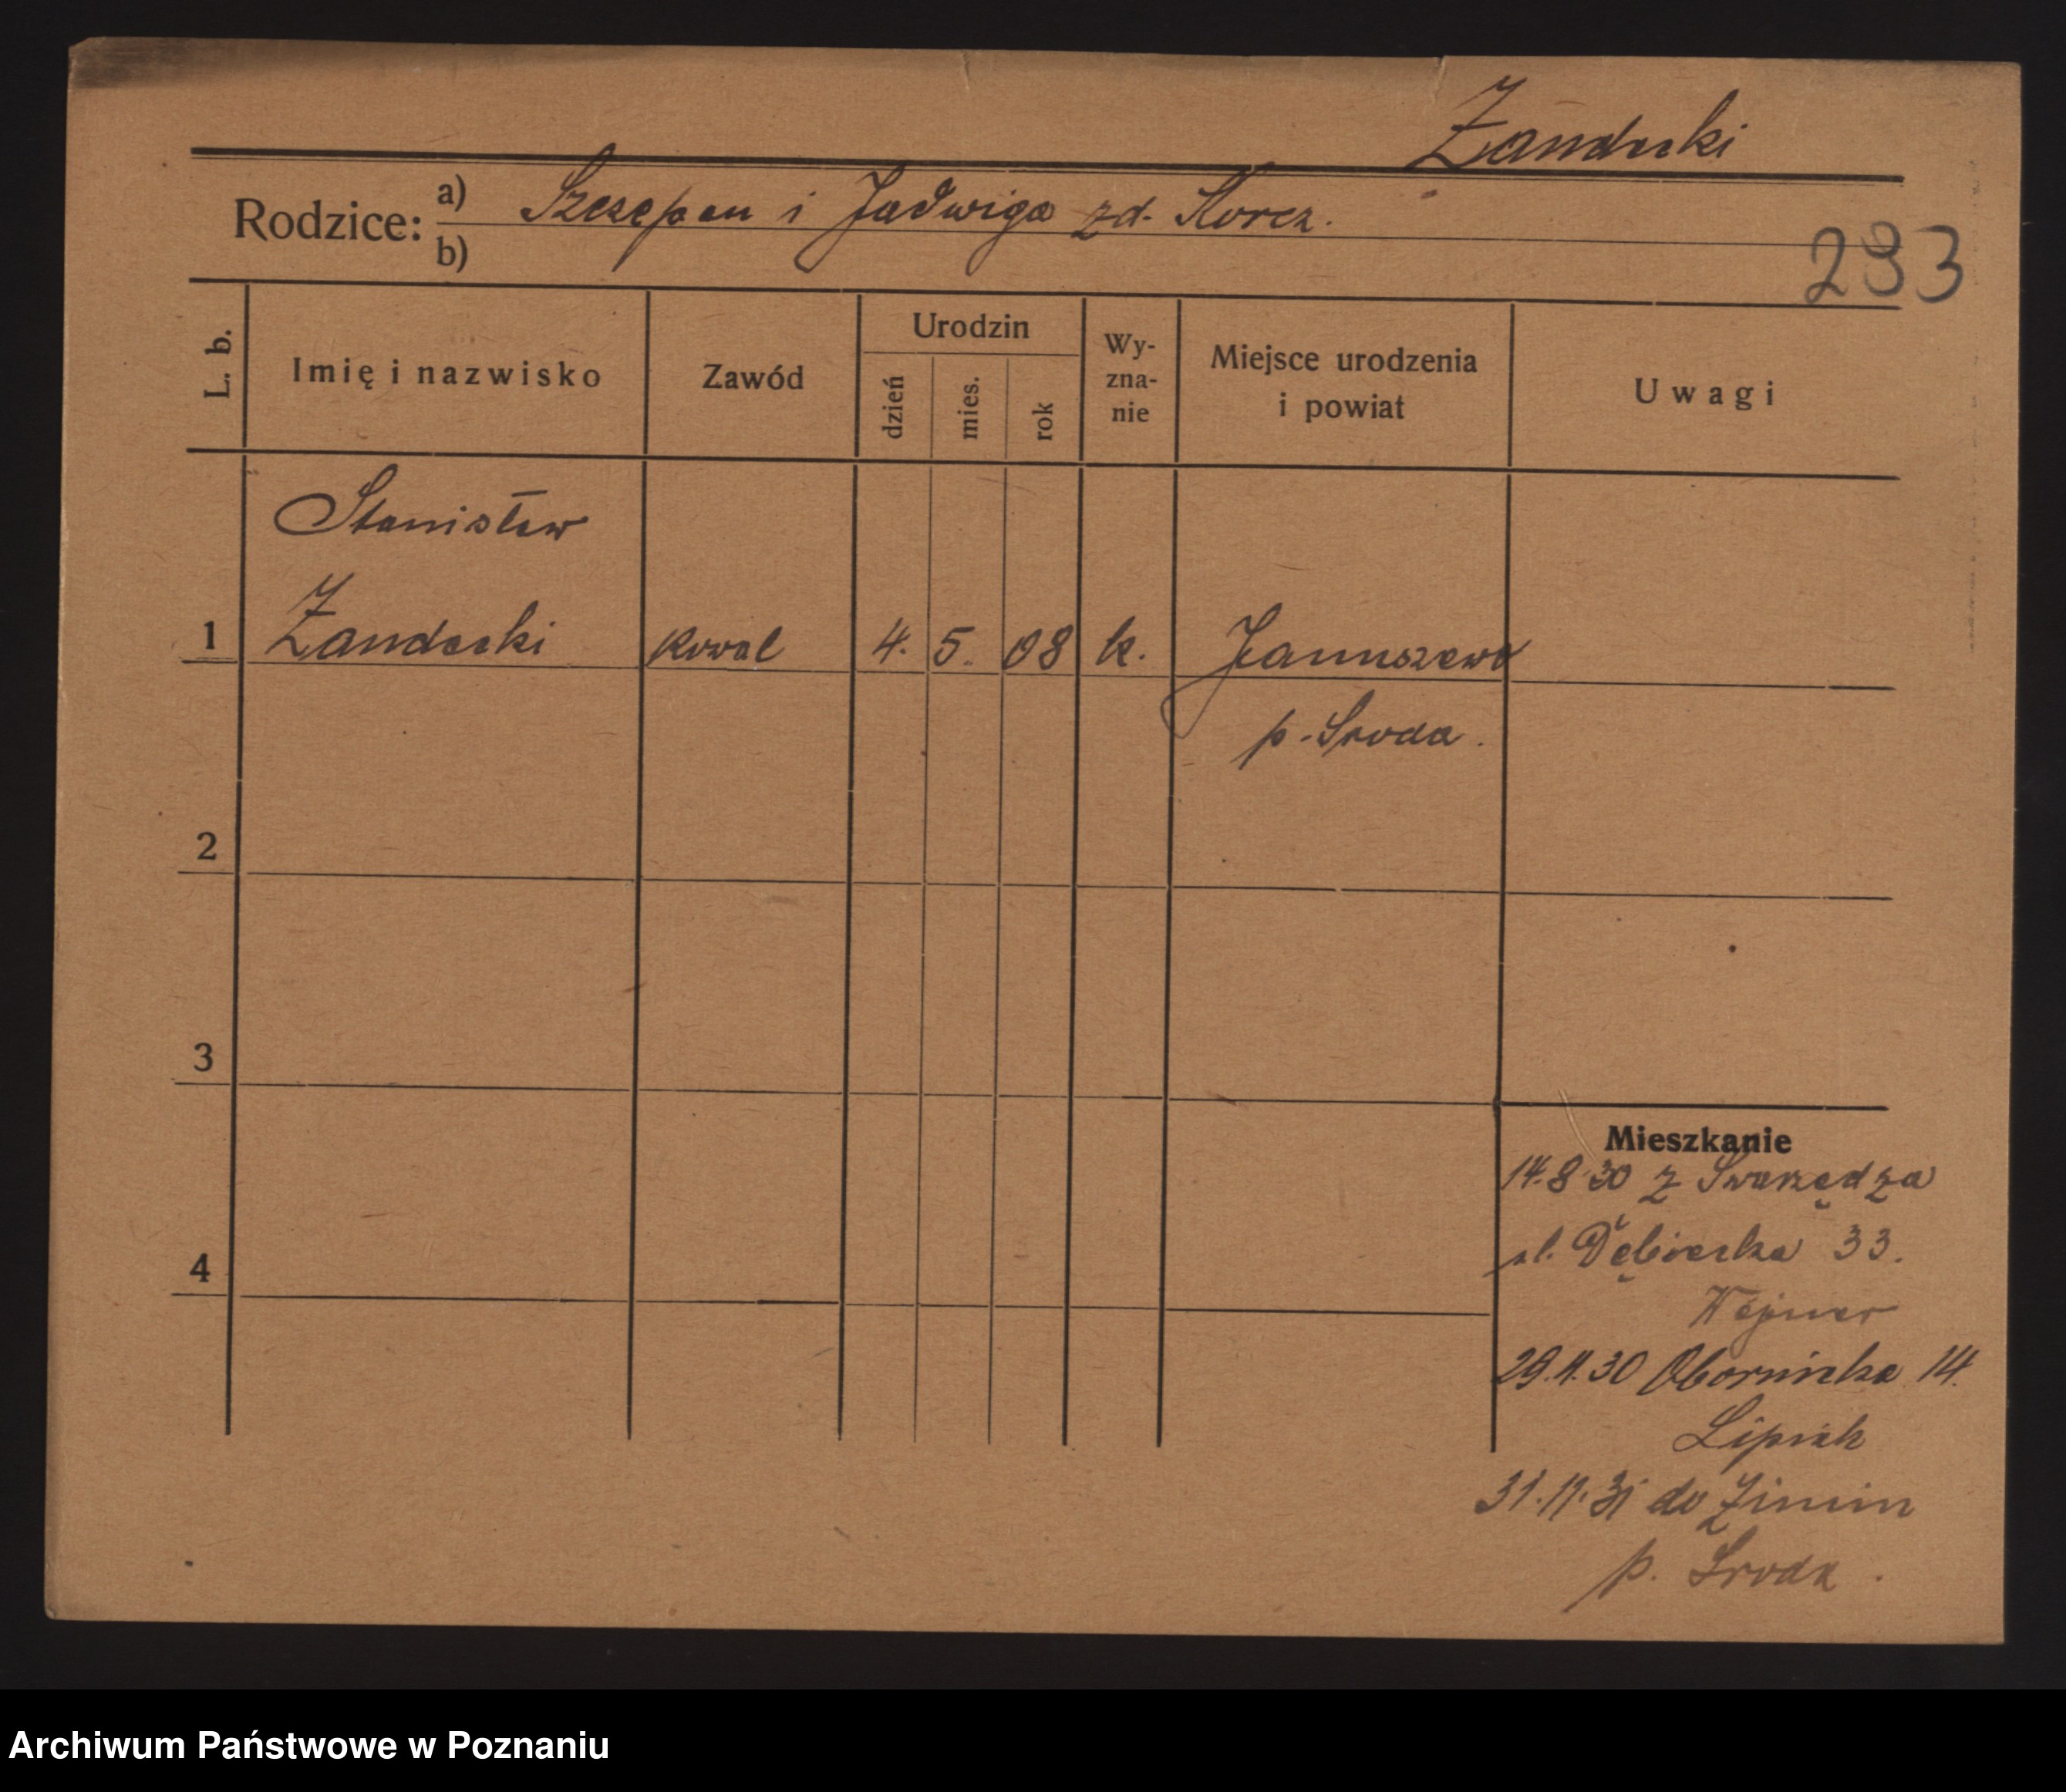 Żandecki
Rodzice: a) Szczepan i Jadwiga zd. Korcz.
b)
293
L. b.
Imię i nazwisko
Zawód
Urodzin
dzień
mies.
rok
Wy-
zna-
nie
Miejsce urodzenia
i powiat
Uwagi
Stanisław
1 Żandecki kowal 4. 5. 08 k. Januszewo
p. Sroda.
2
3
4
Mieszkanie
14.8.30 z Swarzędza
ul. Dębiecka 33.
29.11.30 Obornicka 14.
Lipiak
31.11.31 do Zimin
p. Sroda.
Archiwum Państwowe w Poznaniu